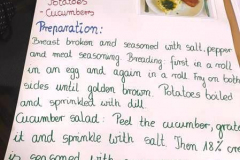 Potatoes
- Cucumbers
Preparation:
Breast broken and seasoned with salt, pepper
and meat seasoning. Breading: first in a roll
in an egg and again in a roll. Fry on both
sides until golden brown. Potatoes boiled
and sprinkled with dill.
Cucumber salad: Peel the cucumber, grate
it and sprinkle with salt. Then 18% cre
is seasoned with